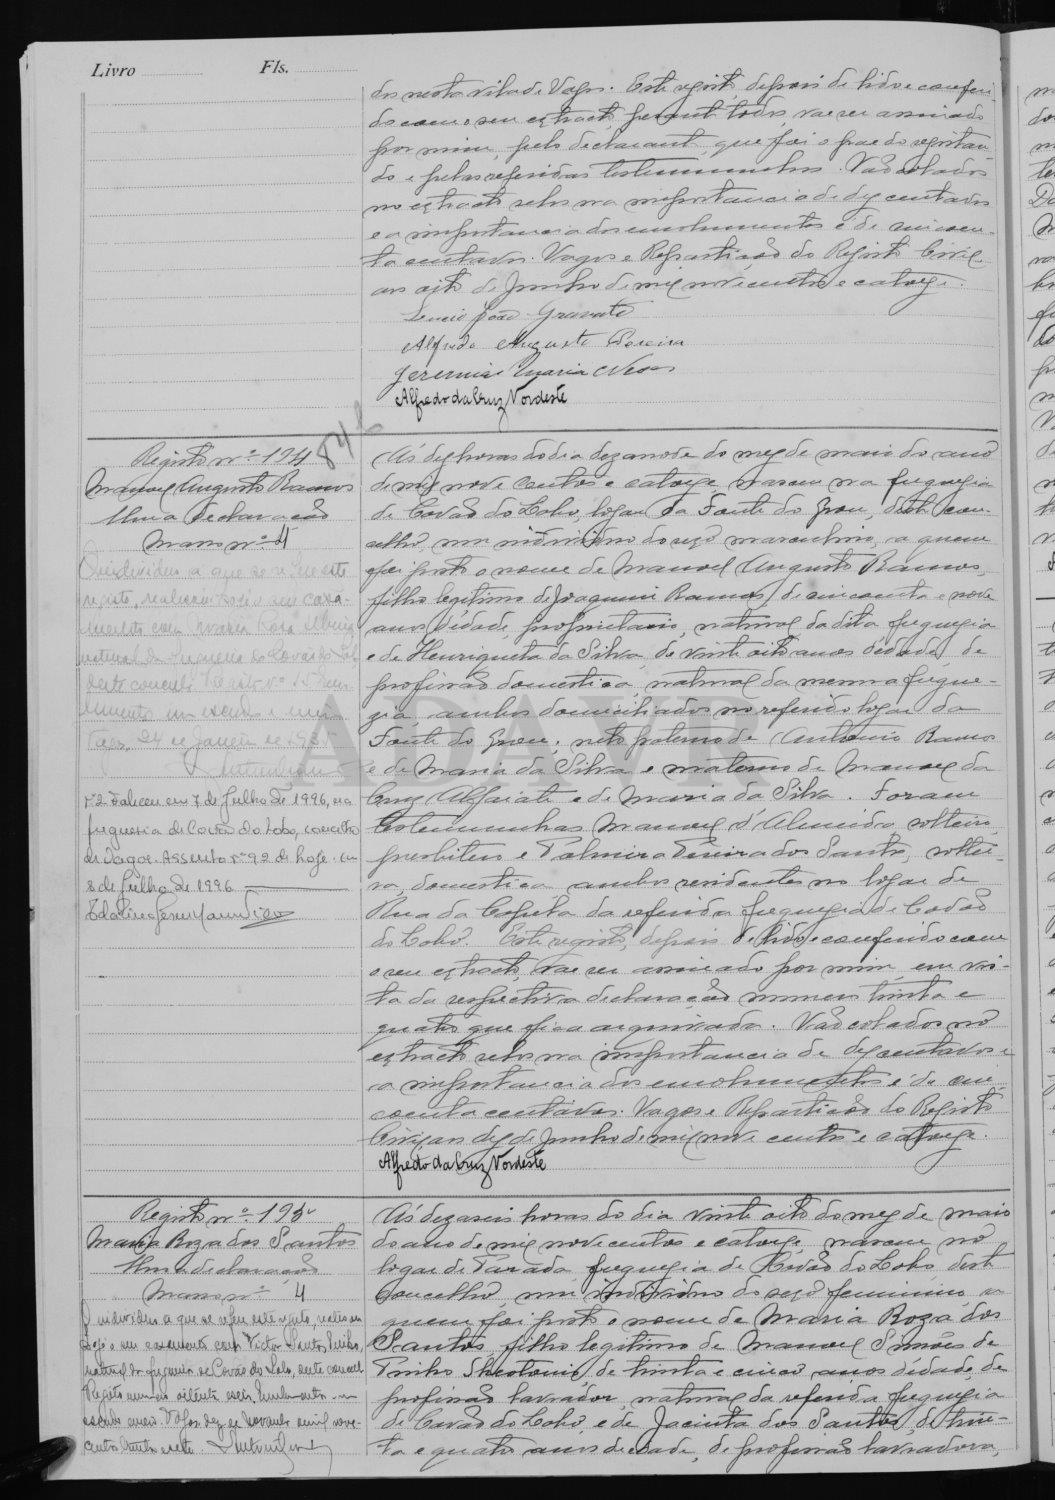 Livro
Fls.
dos nesta vila de Vagos. Este registo, depois de lido e conferi-
do com o seu extracto, perante todos, vae ser assinado
por mim, pelo declarante, que foi o pae do registan-
do e pelas referidas testemunhas. Vão colados
no extracto selos na importancia de dez centavos
e a importancia dos emolumentos é de cincoen-
ta centavos. Vagos e Repartição do Registo Civil,
aos oito de Junho de mil nove centos e catorze.
João Gravato
Alfredo Augusto Pereira
Jeremias Maria Neves
Alfredo da Cruz Nordeste
Registo nº 194
Manoel Augusto Ramos
Uma declaração
Masso nº 4
O individuo a que se refere este
registo, realisou hoje o seu casa-
mento com Maria Rosa
natural da freguesia de Covão do Lobo
deste concelho. Registo nº
24 de Janeiro de
Nº 2 Faleceu em 7 de Julho de 1996, na
freguesia de Covão do Lobo, concelho
de Vagos. Assento nº 92 de hoje. Em
8 de Julho de 1996
Ás dez horas do dia dezanove do mez de maio do ano
de mil nove centos e catorze, nasceu na freguezia
de Covão do Lobo, logar da Fonte do Grou, deste con-
celho, um individuo do sexo masculino, a quem
foi posto o nome de Manoel Augusto Ramos,
filho legitimo de Joaquim Ramos, de cincoenta e nove
anos d'edade, proprietario, natural da dita freguezia
e de Henriqueta da Silva, de vinte oito anos d'edade, de
profissão domestica, natural da mesma fregue-
zia, ambos domiciliados no referido logar da
Fonte do Grou; neto paterno de Antonio Ramos
e de Maria da Silva e materno de Manoel da
Cruz Alfaiate e de Maria da Silva. Foram
testemunhas Manoel d'Almeida, solteiro,
presbitero e Palmira Pereira dos Santos, soltei-
ra, domestica ambos residentes no logar de
Rua da Capela da referida freguezia de Covão
do Lobo. Este registo, depois de lido e conferido com
o seu extracto, vae ser assinado por mim, em vis-
ta da respectiva declaração numero trinta e
quatro que fica arquivada. Vão colados no
extracto selos na importancia de dez centavos e
a importancia dos emolumentos é de cin-
coenta centavos. Vagos e Repartição do Registo
Civil, aos dez de Junho de mil nove centos e catorze.
Alfredo da Cruz Nordeste
ADAVR
Registo nº 195
Maria Roza dos Santos
Uma declaração
Masso nº 4
O individuo a que se refere este registo, realisou
hoje o seu casamento com Victor Santos
natural da freguesia de Covão do Lobo, deste concelho
Registo numero oitenta e seis
Vagos, dez de
Ás dezaseis horas do dia vinte oito do mez de maio
do ano de mil nove centos e catorze, nasceu no
logar de Parada, freguezia de Covão do Lobo, deste
concelho, um individuo do sexo feminino, a
quem foi posto o nome de Maria Roza dos
Santos, filho legitimo de Manoel Simões de
Pinho de trinta e cinco anos d'edade, de
profissão lavrador, natural da referida freguezia
de Covão do Lobo, e de Jacinta dos Santos, de trin-
ta e quatro anos de edade, de profissão lavradora,